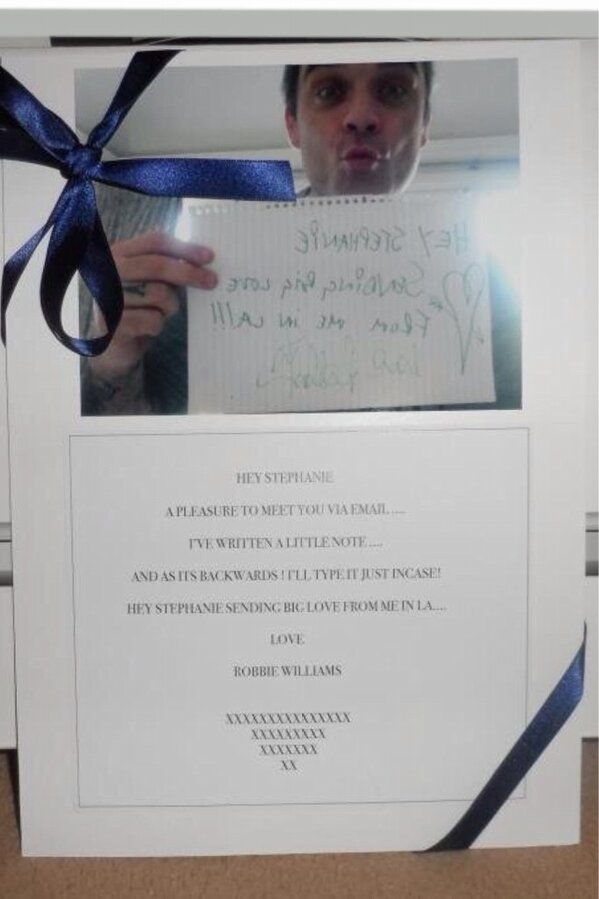 HEY STEPHANIE
SENDING BIG LOVE
FROM ME IN LA!!!
Love Robbie
HEY STEPHANIE
A PLEASURE TO MEET YOU VIA EMAIL .....
I'VE WRITTEN A LITTLE NOTE ....
AND AS ITS BACKWARDS ! I'LL TYPE IT JUST INCASE!
HEY STEPHANIE SENDING BIG LOVE FROM ME IN LA....
LOVE
ROBBIE WILLIAMS
XXXXXXXXXXXXXXX
XXXXXXXXX
XXXXXXX
XX